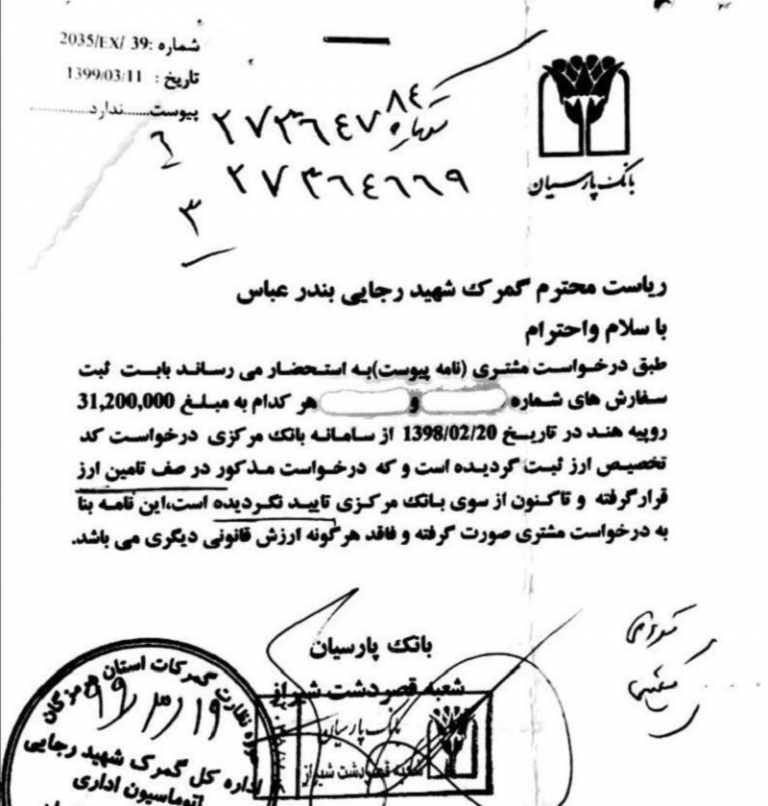 شماره :39 /2035/EX
تاریخ : 1399/03/11
پیوست......ندارد
۸٤
۲۷۳٦٤٧
۲۷۳٦٤٦٦٩
۳
بانک پارسیان
ریاست محترم گمرک شهید رجایی بندر عباس
با سلام واحترام
طبق درخواست مشتری (نامه پیوست)به استحضار می رساند بابت ثبت
سفارش های شماره و هر کدام به مبلغ 31,200,000
روپیه هند در تاریخ 1398/02/20 از سامانه بانک مرکزی درخواست کد
تخصیص ارز ثبت گردیده است و که درخواست مذکور در صف تامین ارز
قرارگرفته و تاکنون از سوی بانک مرکزی تایید نگردیده است،این نامه بنا
به درخواست مشتری صورت گرفته و فاقد هرگونه ارزش قانونی دیگری می باشد.
بانک پارسیان
شعبه قصردشت شیراز
بانک پارسیان
شعبه قصردشت شیراز
حوزه نظارت گمرکات استان هرمزگان
۹۹/۳/۱۹
اداره کل گمرک شهید رجایی
اتوماسیون اداری